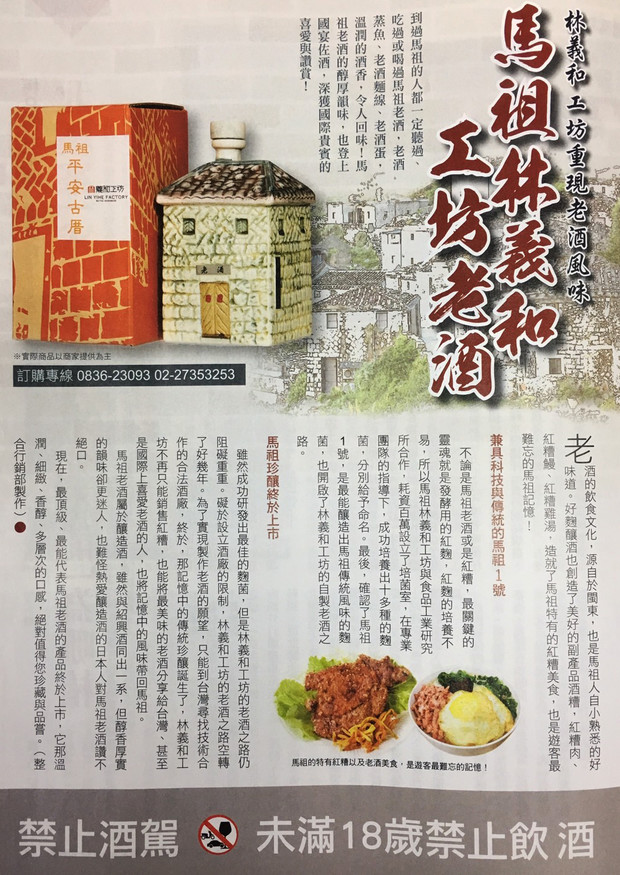 林義和工坊重現老酒風味
馬祖林義和
工坊老酒
到過馬祖的人都一定聽過、
吃過或喝過馬祖老酒，老酒
蒸魚、老酒麵線、老酒蛋，
溫潤的酒香，令人回味！馬
祖老酒的醇厚韻味，也登上
國宴佐酒，深獲國際貴賓的
喜愛與讚賞！
馬祖
平安古厝
義和工坊
LIN YIHE FACTORY
老酒
※實際商品以商家提供為主
訂購專線 0836-23093 02-27353253
老酒的飲食文化，源自於閩東，也是馬祖人自小熟悉的好
味道。好麴釀酒也創造了美好的副產品酒糟，紅糟肉、
紅糟鰻、紅糟雞湯，造就了馬祖特有的紅糟美食，也是遊客最
難忘的馬祖記憶！
兼具科技與傳統的馬祖1號
不論是馬祖老酒或是紅糟，最關鍵的
靈魂就是發酵用的紅麴，紅麴的培養不
易，所以馬祖林義和工坊與食品工業研究
所合作，耗資百萬設立了培菌室，在專業
團隊的指導下，成功培養出十多種的麴
菌，分別給予命名。最後，確認了馬祖
1號，是最能釀造出馬祖傳統風味的麴
菌，也開啟了林義和工坊的自製老酒之
路。
馬祖珍釀終於上市
雖然成功研發出最佳的麴菌，但是林義和工坊的老酒之路仍
阻礙重重。礙於設立酒廠的限制，林義和工坊的老酒之路空轉
了好幾年。為了實現製作老酒的願望，只能到台灣尋找技術合
作的合法酒廠，終於，那記憶中的傳統珍釀誕生了，林義和工
坊不再只能銷售紅糟，也能將最美味的老酒分享給台灣、甚至
是國際上喜愛老酒的人，也將記憶中的風味帶回馬祖。
馬祖老酒屬於釀造酒，雖然與紹興酒同出一系，但醇香厚實
的韻味卻更迷人，也難怪熱愛釀造酒的日本人對馬祖老酒讚不
絕口。
現在，最頂級、最能代表馬祖老酒的產品終於上市，它那溫
潤、細緻、香醇、多層次的口感，絕對值得您珍藏與品嘗。（整
合行銷部製作）
馬祖的特有紅糟以及老酒美食，是遊客最難忘的記憶！
禁止酒駕 未滿18歲禁止飲酒